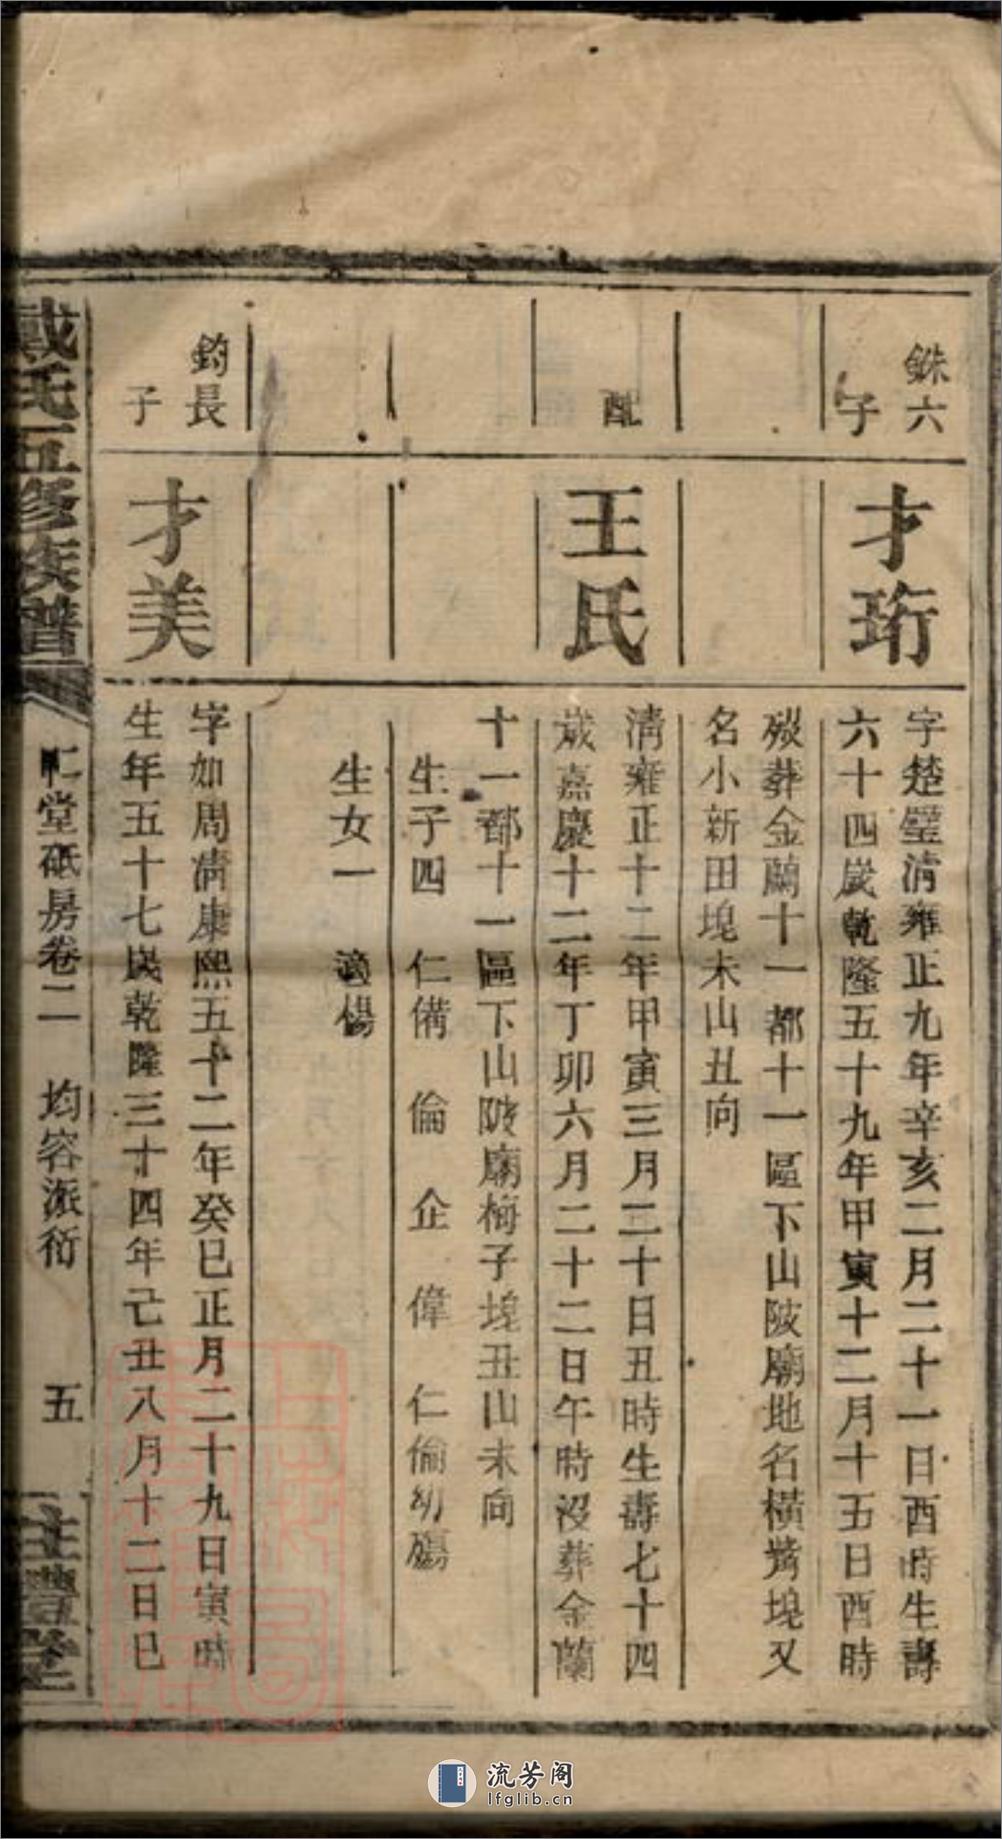 銖六
子
才珩
字楚璧清雍正九年辛亥二月二十一日酉時生壽
六十四歲乾隆五十九年甲寅十二月十五日酉時
歿葬金蘭十一都十一區下山陂廟地名橫塝塊又
名小新田塊未山丑向
配
王氏
清雍正十二年甲寅三月二十日丑時生壽七十四
歲嘉慶十二年丁卯六月二十二日午時沒葬金蘭
十一都十一區下山陂廟梅子塊丑山未向
生子四 仁備 倫 企 偉 仁倫幼殤
生女一 適楊
鈞長
子
才美
字如周清康熙五十二年癸巳正月二十九日寅時
生年五十七歲乾隆三十四年己丑八月十二日巳
戴氏五修族譜
堂砥房卷二 均容派衍 五
注禮堂
流芳阁
lfglib.cn